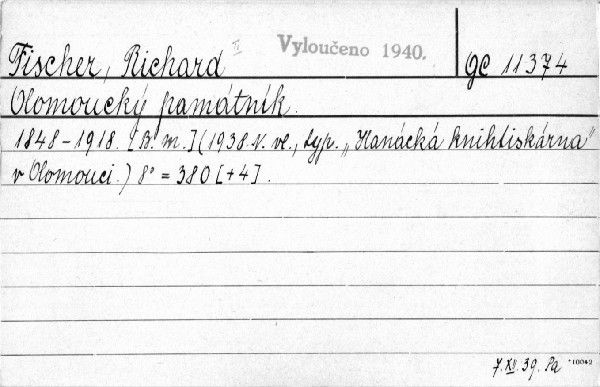 Fischer, Richard II Vyloučeno 1940. gC 11374
Olomoucký památník.
1848-1918. [B. m.] (1938. N. vl., typ. „Hanácká knihtiskárna"
v Olomouci.) 8° = 380 [+4].
7. XII. 39. Pa *10042